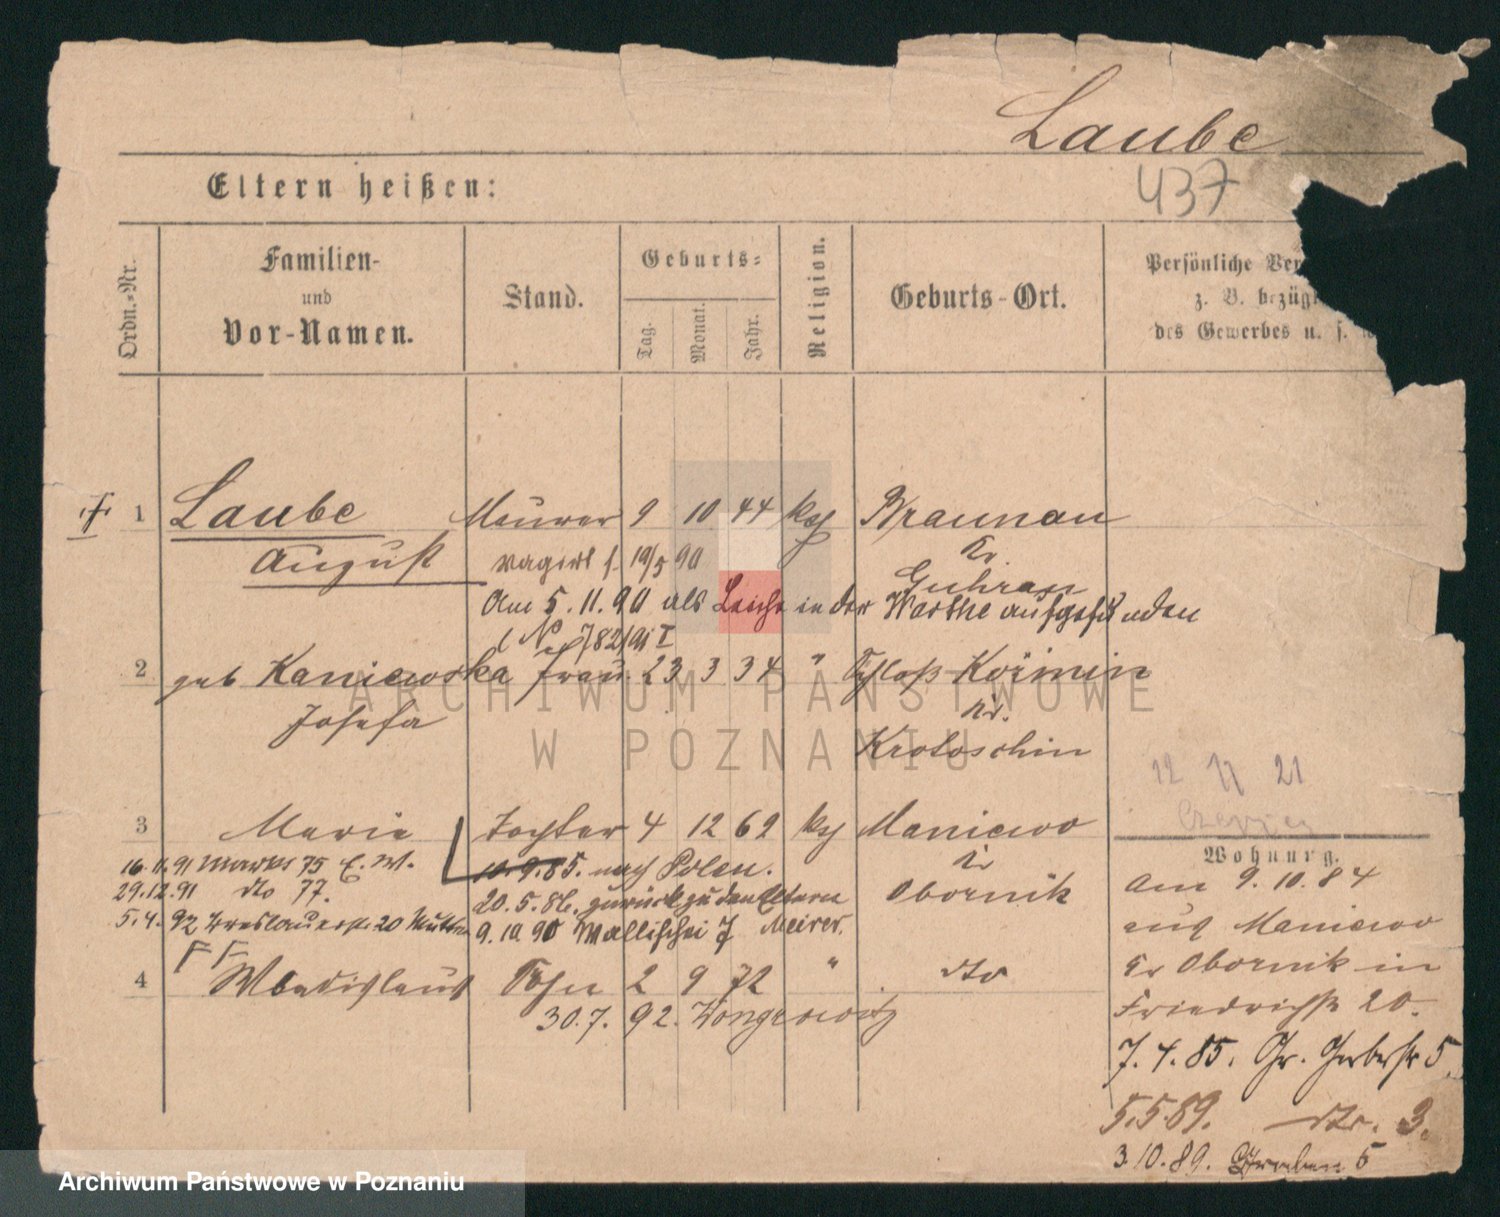 Laube
437
Eltern heißen:
Ordn.-Nr.
Familien-
und
Vor-Namen.
Stand.
Geburts-
Tag.
Monat.
Jahr.
Religion.
Geburts-Ort.
Persönliche Ver
z. B. bezügl
des Gewerbes u. s. w
1 Laube Maurer 9 10 44 kath Braunau
August
Kr
Guhrau
vagirt s. 19/5 90
Am 5. 11. 90 als Leiche in der Warthe aufgefunden
(No 782/91 I
2 geb Kaniewska Frau. 23 3 34 " Schloß Koźmin
Josefa
Kr.
Krotoschin
12 11 21
3 Marie Tochter 4 12 69 kath Maniewo
Kr
Obornik
16. 11. 91 Markt 75 E. W.
29.12.91 dto 77.
5.4.92 Breslauerstr. 20 Mutter
10.9.85. nach Polen.
20.5.86. zurück zu den Eltern
9.10 90 Wallischei 7 Meirer.
4 Wladislaus Sohn 2 9 72 " dto
30.7.92. Wongrowitz
Wohnung.
Am 9. 10. 84
aus Maniewo
Kr Obornik in
Friedrichstr 20.
7. 4. 85. Gr. Gerberstr 5.
5.5.89. dto. 3.
3.10.89. Graben 5
ARCHIWUM PAŃSTWOWE
W POZNANIU
Archiwum Państwowe w Poznaniu